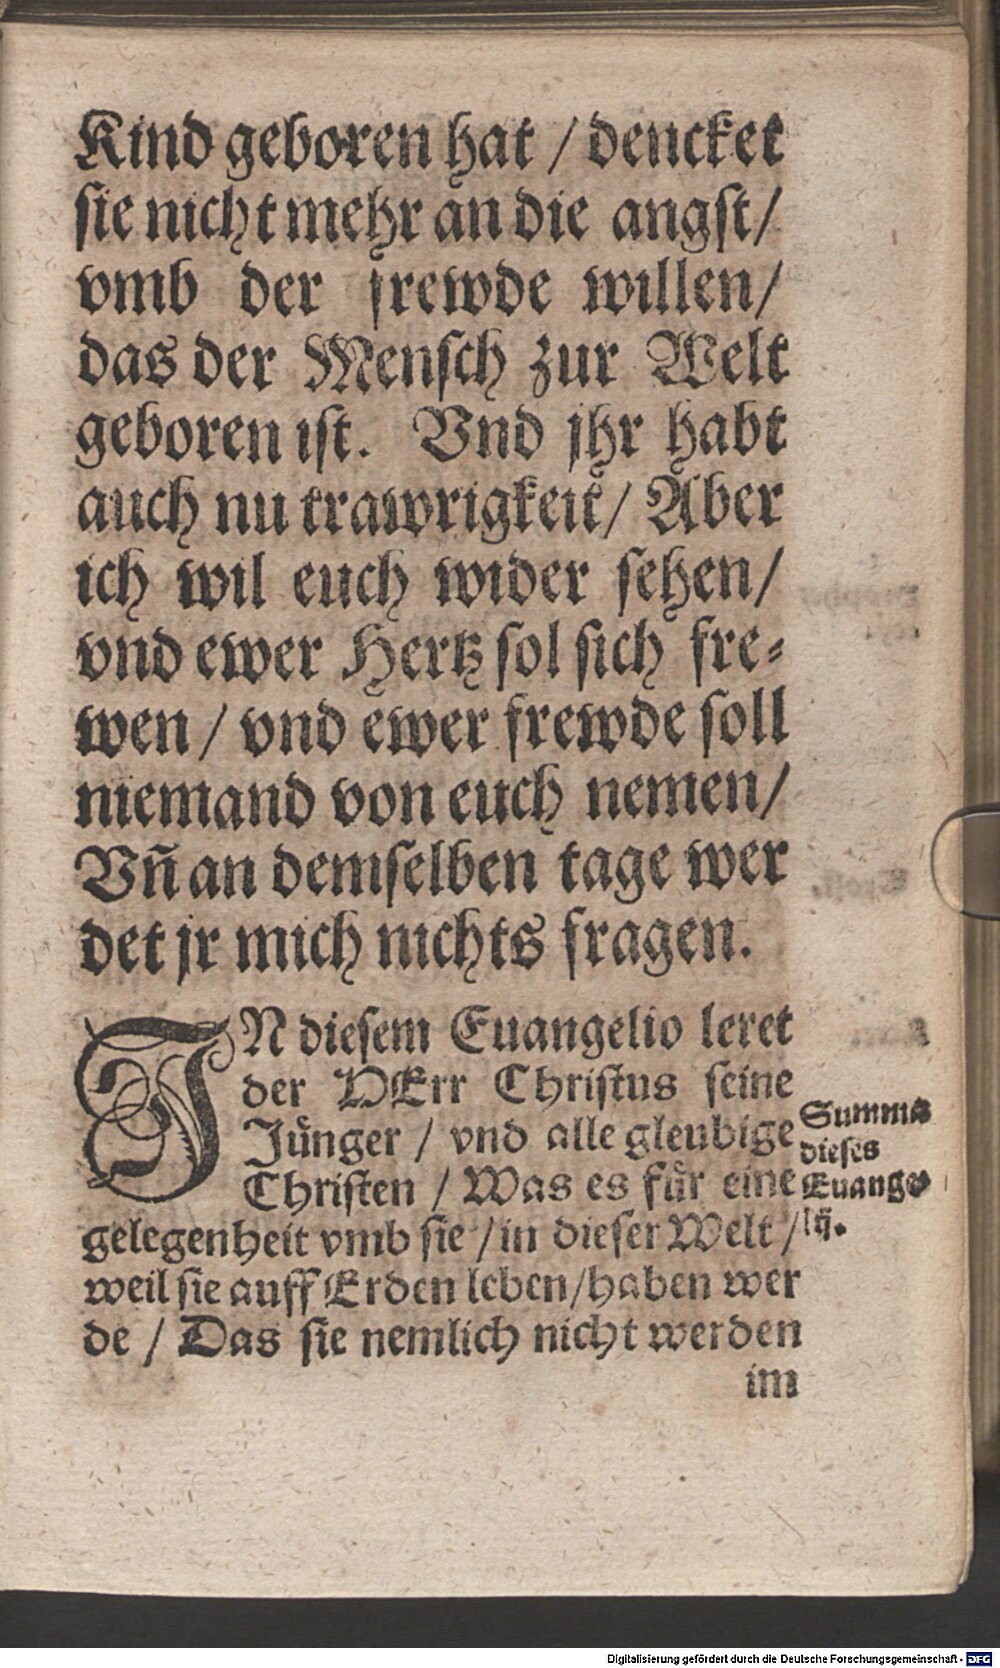 Kind geboren hat / dencket
sie nicht mehr an die angst /
vmb der frewde willen /
das der Mensch zur Welt
geboren ist. Vnd jhr habt
auch nu trawrigkeit / Aber
ich wil euch wider sehen /
vnd ewer Hertz sol sich fre-
wen / vnd ewer frewde soll
niemand von euch nemen /
Vñ an demselben tage wer
det jr mich nichts fragen.
IN diesem Euangelio leret
der HErr Christus seine
Jünger / vnd alle gleubige
Christen / Was es für eine
gelegenheit vmb sie / in dieser Welt /
weil sie auff Erden leben / haben wer
de / Das sie nemlich nicht werden
im
Summa
dieses
Euange
lij.
Digitalisierung gefördert durch die Deutsche Forschungsgemeinschaft - DFG